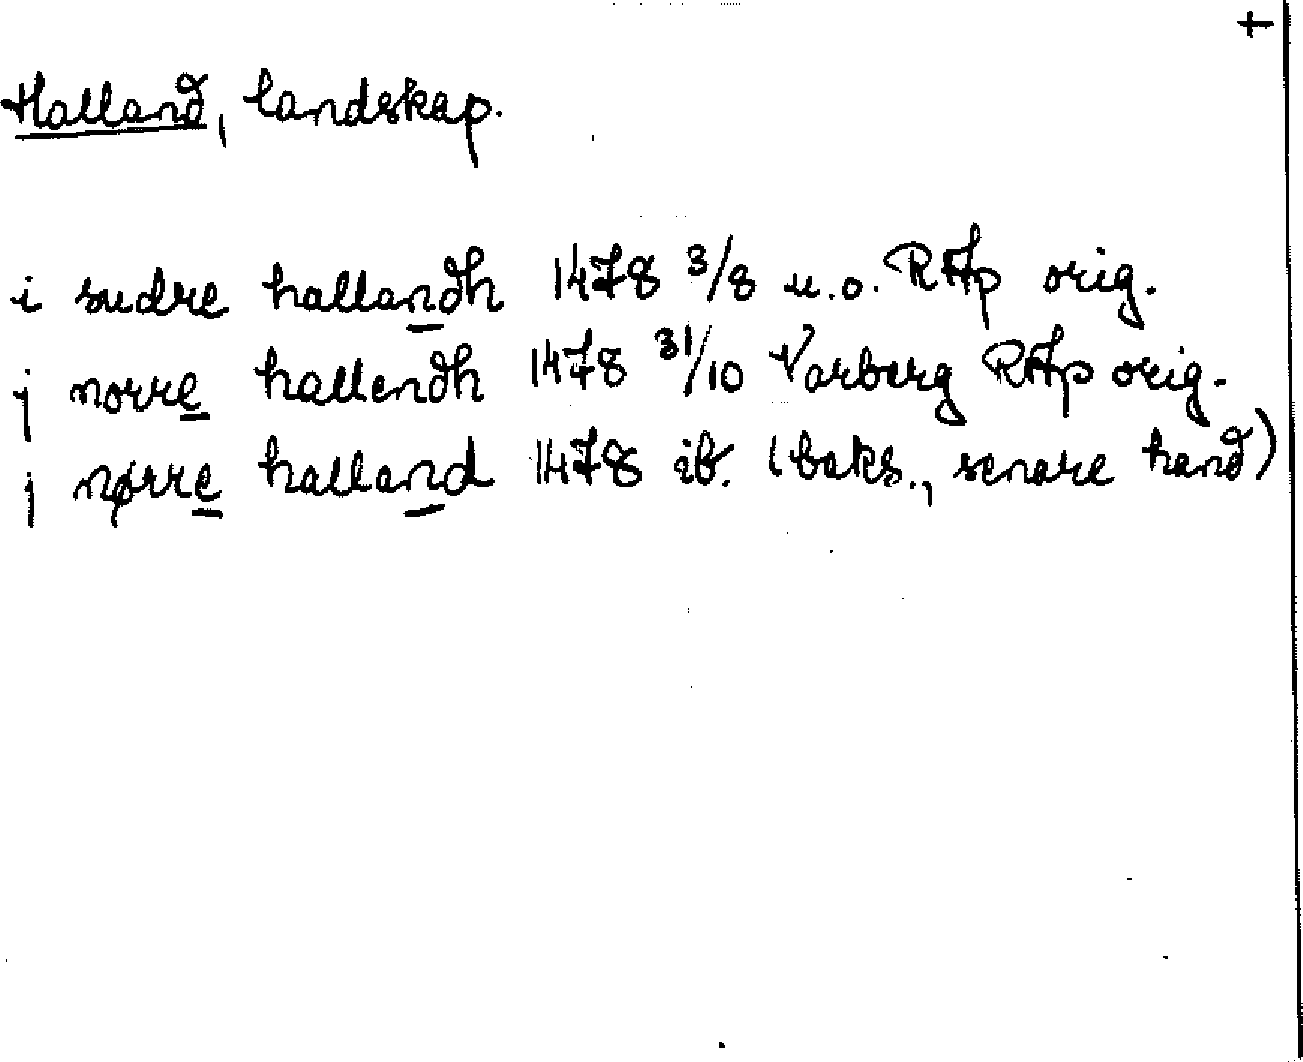 +
Halland, landskap.
i sudre hallandh 1478 3/8 u.o. RAp orig.
j norre hallendh 1478 31/10 Varberg RAp orig.
j nørre halland 1478 ib. (baks., senare hand)